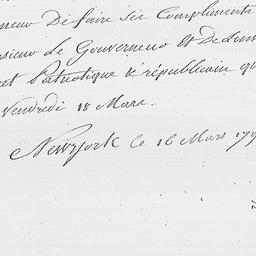 neur De faire Ses Compliments
nsieur de Gouverneur Et De
et Patriotique & républicain qu
Vendredi 18 Mars.
Newyork le 16 Mars 179